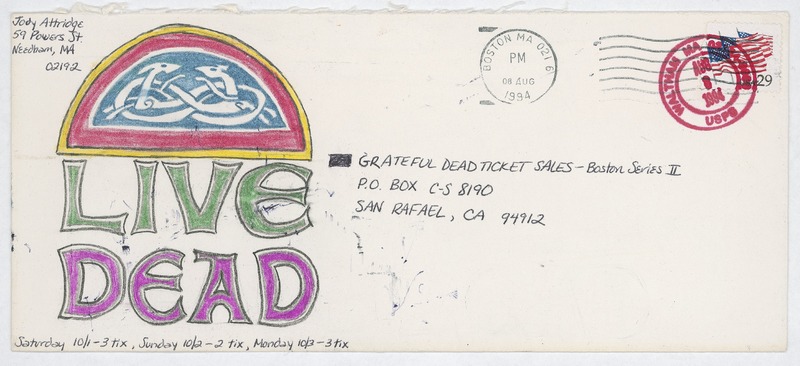 Jody Attridge
59 Powers St.
Needham, MA
02192
BOSTON MA 021 6
PM
08 AUG
1994
WALTHAM MA
AUG
8
1994
USPS
29
LIVE
DEAD
GRATEFUL DEAD TICKET SALES - Boston Series II
P.O. BOX C-S 8190
SAN RAFAEL, CA 94912
Saturday 10/1 - 3 tix, Sunday 10/2 - 2 tix, Monday 10/3 - 3 tix